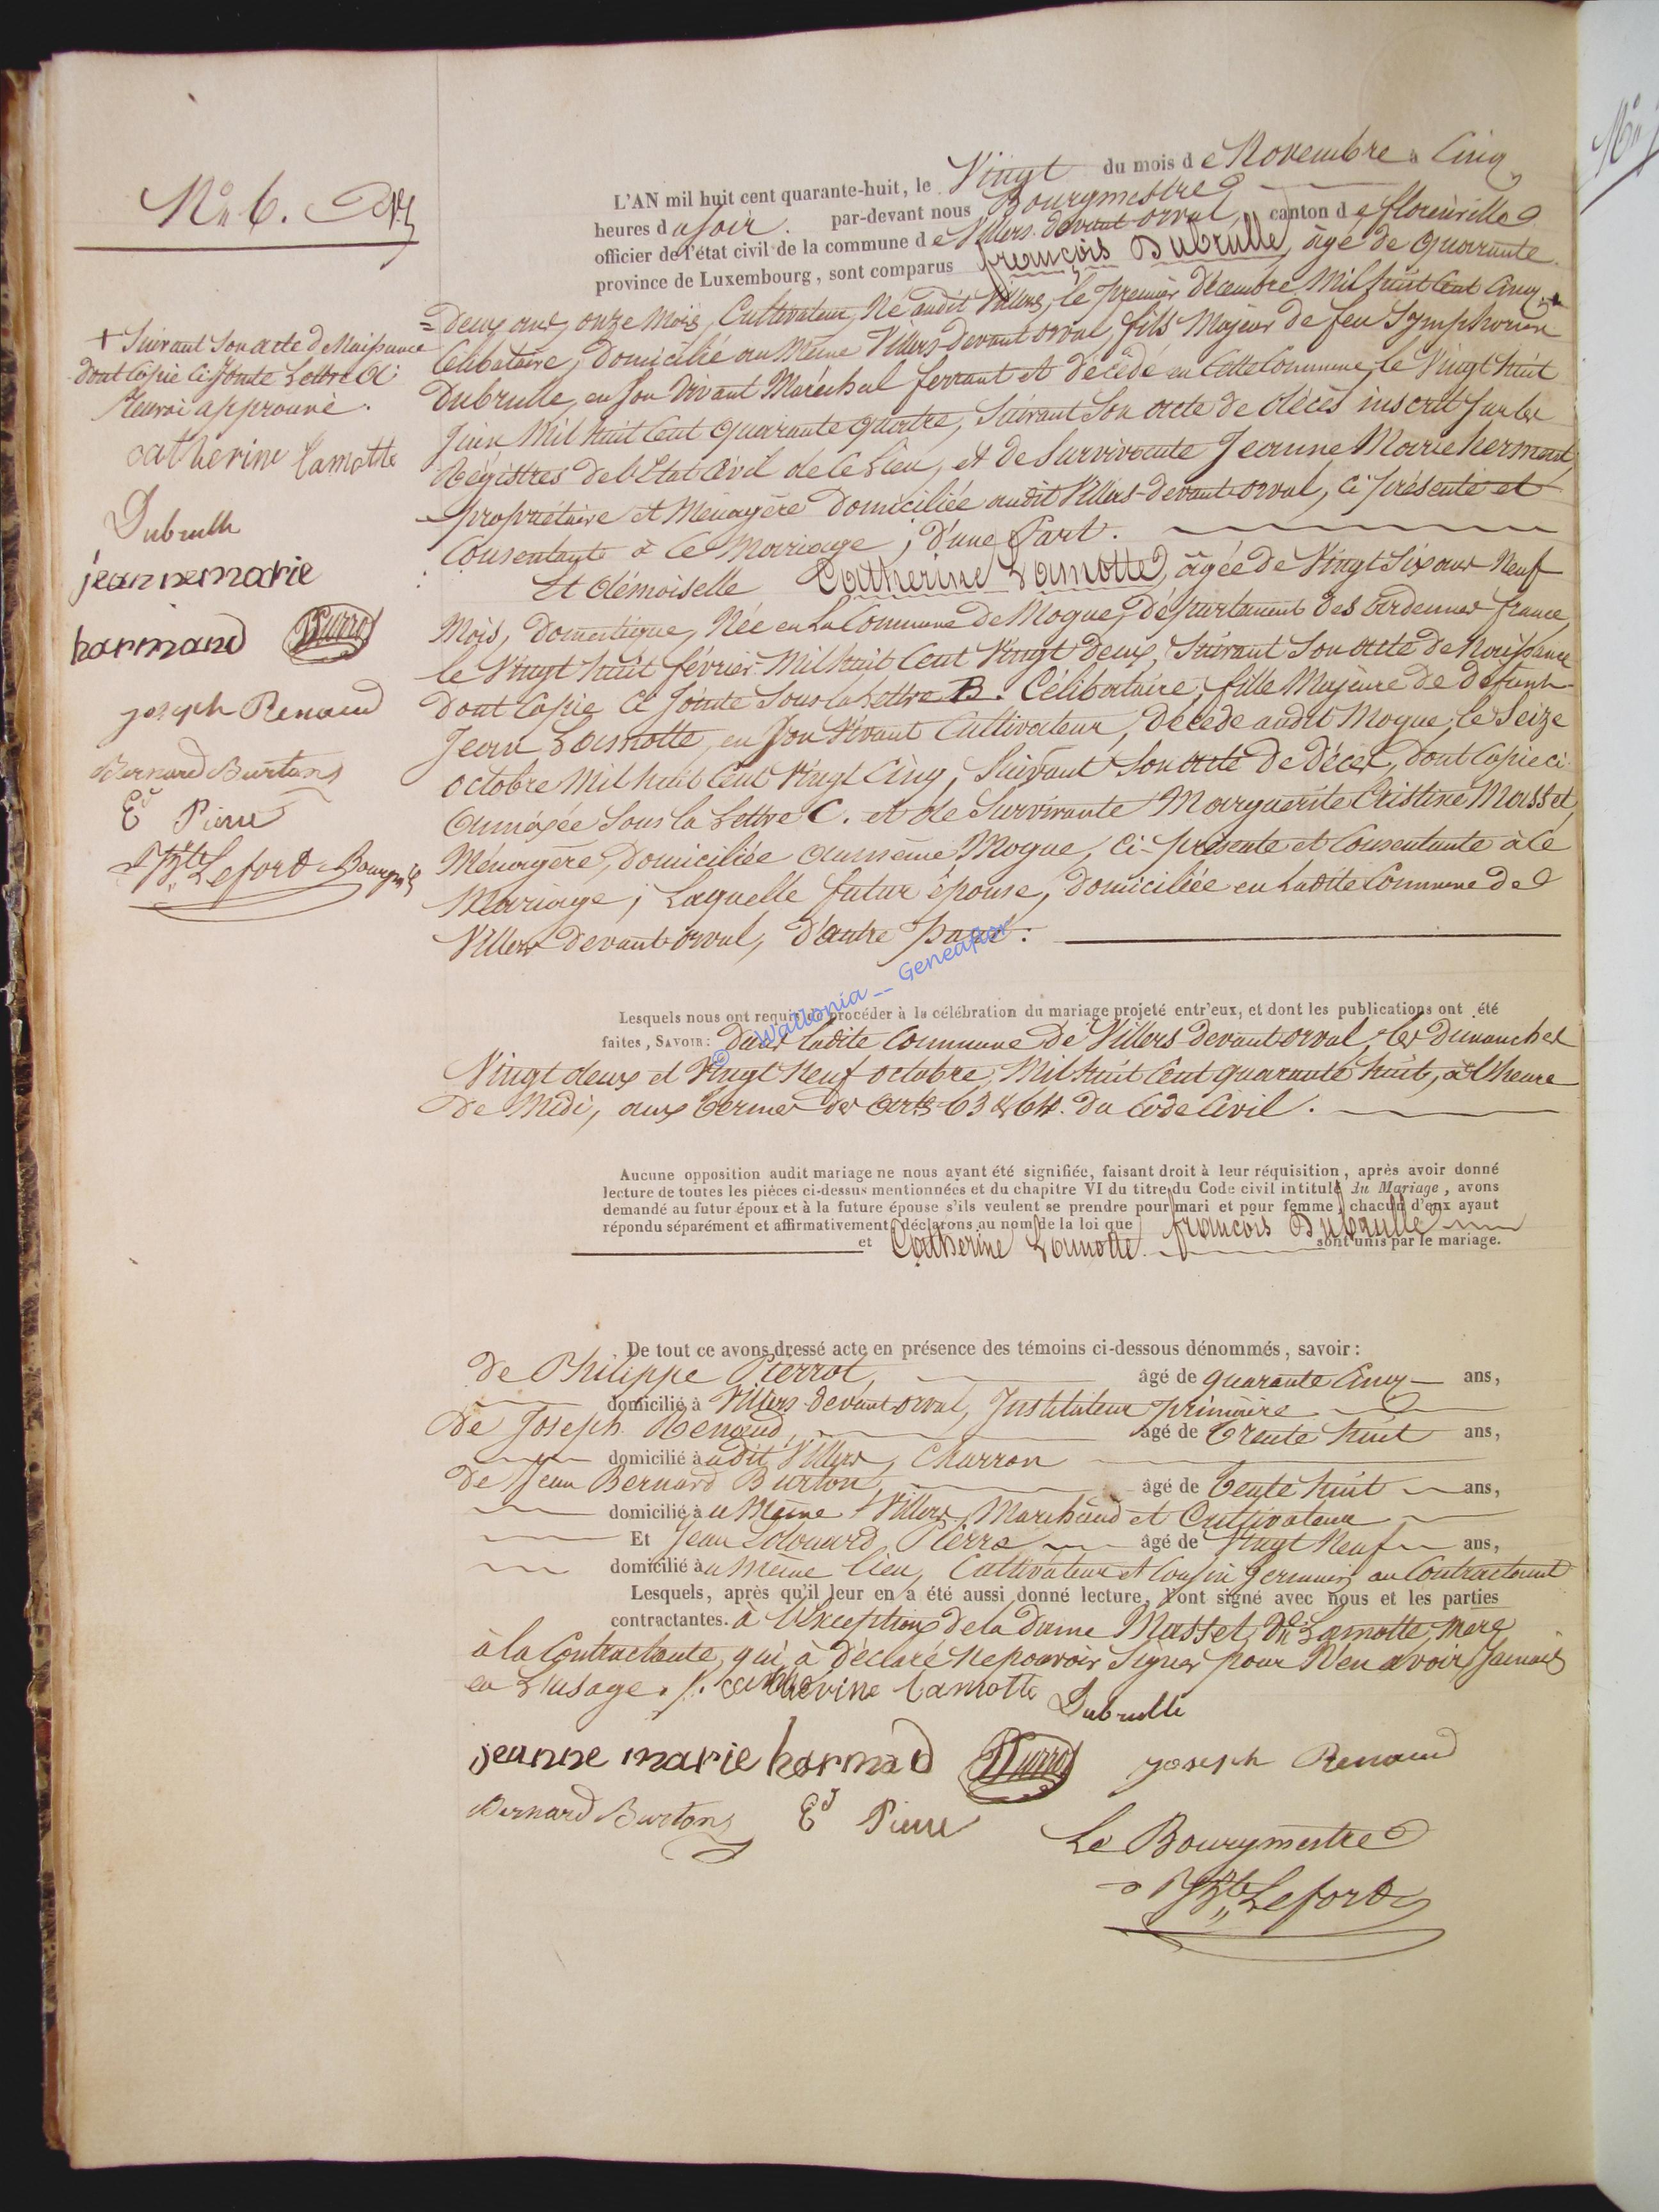 N° 6.
L'AN mil huit cent quarante-huit, le Vingt du mois de Novembre à Cinq
heures du soir. par-devant nous Bourgmestre
officier de l'état civil de la commune de Villers-devant-orval, canton de florenville
province de Luxembourg, sont comparus françois Dubrulle, âgé de quarante
=deux ans, onze Mois, Cultivateur, Né audit Villers, le premier décembre Mil huit Cent Cinq, +
Célibataire, Domicilié au Même Villers-devant orval, fils Majeur de feu Symphorien
Dubrulle, en Son Vivant Maréchal ferrant et décédé en Cette Commune, le Vingt huit
Juin Mil huit Cent quarante quatre, Suivant Son acte de décès inscrit Sur les
Régistres de l'Etat Civil de Ce Lieu, et de Survivante Jeanne Marie hermand,
propriétaire et Ménagère Domiciliée audit Villers-devant-orval, ci présente et
Consentante à Ce Mariage, d'une Part.
Et démoiselle Catherine Lamotte, âgée de Vingt Six ans Neuf
Mois, Domestique, Née en La Commune de Mogue, département des Ardennes france,
le Vingt huit février Mil huit Cent Vingt deux, Suivant Son acte de Naissance
Dont Copie Ci Jointe Sous la Lettre B. Célibataire, fille Majeure de défunt
Jean Lamotte, en Son Vivant Cultivateur, décédé audit Mogue, le Seize
octobre Mil huit Cent Vingt Cinq, Suivant Son acte de Décès, Dont Copie ci
annéxée Sous la Lettre C. et de Survivante Marguerite Cristine Masset,
Ménagère, Domiciliée aumême Mogue, Ci-présente et Consentante à Ce
Mariage; Laquelle futur épouse, Domiciliée en Ladite Commune de
Villers devant-orval, d'autre part:
+ Suivant Son acte de Naissance
dont Copie Ci Jointe Lettre A
Renvoi approuvé.
catherine lamotte
Dubrulle
jeanne marie
harmand Pierrot
joseph Renaud
Bernard Burton
Ed Pierre
Jn Bte Lefort Bourgmtre
© Wallonia -- Geneafor
Lesquels nous ont requis de procéder à la célébration du mariage projeté entr'eux, et dont les publications ont été
faites, SAVOIR: Dans ladite Commune de Villers devant orval, les dimanches
Vingt deux et Vingt Neuf octobre, Mil huit Cent quarante huit, à l'heure
de Midi, aux termes des Arts 63 & 64. Du Code Civil.
Aucune opposition audit mariage ne nous ayant été signifiée, faisant droit à leur réquisition, après avoir donné
lecture de toutes les pièces ci-dessus mentionnées et du chapitre VI du titre du Code civil intitulé du Mariage, avons
demandé au futur époux et à la future épouse s'ils veulent se prendre pour mari et pour femme, chacun d'eux ayant
répondu séparément et affirmativement, déclarons au nom de la loi que françois Dubrulle
et Catherine Lamotte sont unis par le mariage.
De tout ce avons dressé acte en présence des témoins ci-dessous dénommés, savoir:
de Philippe Pierrot, âgé de quarante Cinq ans,
domicilié à Villers-devant orval, Instituteur primaire
De Joseph Renaud, âgé de trente huit ans,
domicilié à udit Villers, Charron
De Jean Bernard Burton, âgé de tente huit ans,
domicilié à u Même Villers, Marchand et Cultivateur
Et Jean Edouard Pierre âgé de Vingt Neuf ans,
domicilié à u Même lieu, Cultivateur et Cousin germain au Contractant
Lesquels, après qu'il leur en a été aussi donné lecture, l'ont signé avec nous et les parties
contractantes. à l'exception de la dame Masset, Ve Lamotte, mère
à la Contractante, qui à déclaré Ne pouvoir Signer pour N'en avoir Jamais
eu L'usage. catherine lamotte Dubrulle
jeanne marie harmad Pierrot joseph Renaud
Bernard Burton Ed Pierre
Le Bourgmestre
Jn Bte Lefort